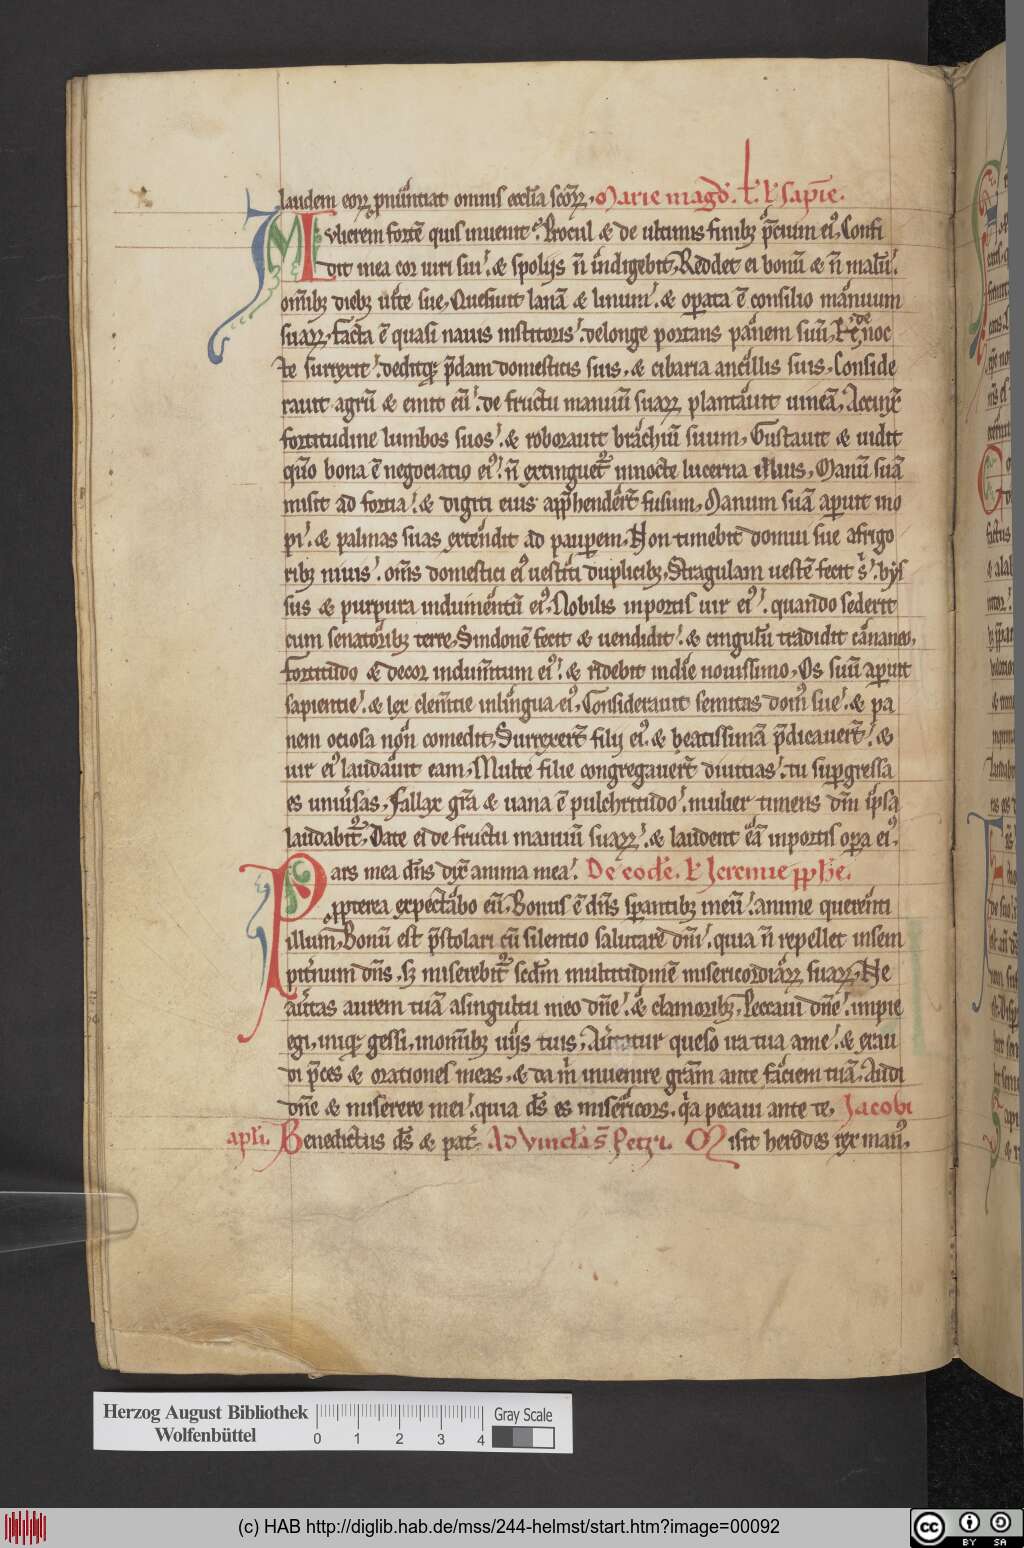 laudem eoꝝ pnūntiat omnis eccl̄ia sc̄oꝝ. Marie magd̄. l̄. l' sapīe.
Mvlierem fortē quis inueniet? Procul & de ultimis finibꝫ p̄cium eiꝰ. Confi
dit in ea cor uiri sui. & spolijs n̄ indigebit. Reddet ei bonū & n̄ malū.
om̄ibꝫ diebꝫ uite sue. Quesiuit lanā & linum. & operata ē consilio manuum
suaꝝ. Facta ē quasi nauis institoris. delonge portans panem suū. Et de noc
te surrexit. deditqꝫ p̄dam domesticis suis. & cibaria ancillis suis. Conside
rauit agrū & emit eū. de fructu manuū suaꝝ plantauit uineā. Accinx̄
fortitudine lumbos suos. & roborauit brachiū suum. Gustauit & uidit
qm̄ bona ē negociatio eiꝰ. n̄ extinguet᷑ innocte lucerna illius. Manū suā
misit ad fortia. & digiti eius app̄henderūt fusum. Manum suā apuit ino
pi. & palmas suas extendit ad paupem. Non timebit domui sue afrigo
ribꝫ niuis. om̄s domestici eiꝰ uestiti duplicibꝫ. Stragulam uestē fecit s'. bys
sus & purpura indumentū eiꝰ. Nobilis inportis uir eiꝰ. quando sederit
cum senatoribꝫ terre. Sindonē fecit & uendidit. & cingulū tradidit cananeo.
fortitudo & decor indum̄tum eiꝰ. & ridebit indie nouissimo. Os suū apuit
sapientie. & lex clem̄tie inlingua eiꝰ. Considerauit semitas domꝰ sue. & pa
nem ociosa non comedit. Surrexer̄t filij eiꝰ. & beatissimā p̄dicauer̄t. &
uir eiꝰ laudauit eam. Multe filie congregauer̄t diuitias. tu supgressa
es uniu̓sas. Fallax grā & uana ē pulchritudo. mulier timens dm̄ ipsa
laudabit᷑. Date ei de fructu manuū suaꝝ. & laudent eā inportis opa eiꝰ.
Pars mea dn̄s dix̄ anima mea. De eodē. l' Jeremie pph̄e.
Propterea expectabo eū. Bonus ē dn̄s spantibꝫ ineū. anime querenti
illum. Bonū est p̄stolari cū silentio salutare dn̄i. quia n̄ repellet insem
pit̄num dn̄s. sꝫ miserebit᷑ scdm̄ multitudinē misericordiaꝝ suaꝝ. Ne
au̓tas aurem tuā asingultu meo dn̄e. & clamoribꝫ. Peccaui dn̄e. impie
egi. iniqꝫ gessi. inom̄ibꝫ uijs tuis. Au̓tatur queso ira tua ame. & exau
di p̄ces & orationes meas. & da m̄ inuenire gram̄ ante faciem tuā. Audi
dn̄e & miserere mei. quia ds̄ es misericors. q̓a peccaui ante te. Jacobi
apl̄i. Benedictus ds̄ & pat̓. Ad vincl̄a s̄. Petri. Misit herodes rex manꝰ.
Herzog August Bibliothek
Wolfenbüttel
0 1 2 3 4
Gray Scale
(c) HAB http://diglib.hab.de/mss/244-helmst/start.htm?image=00092
cc BY SA